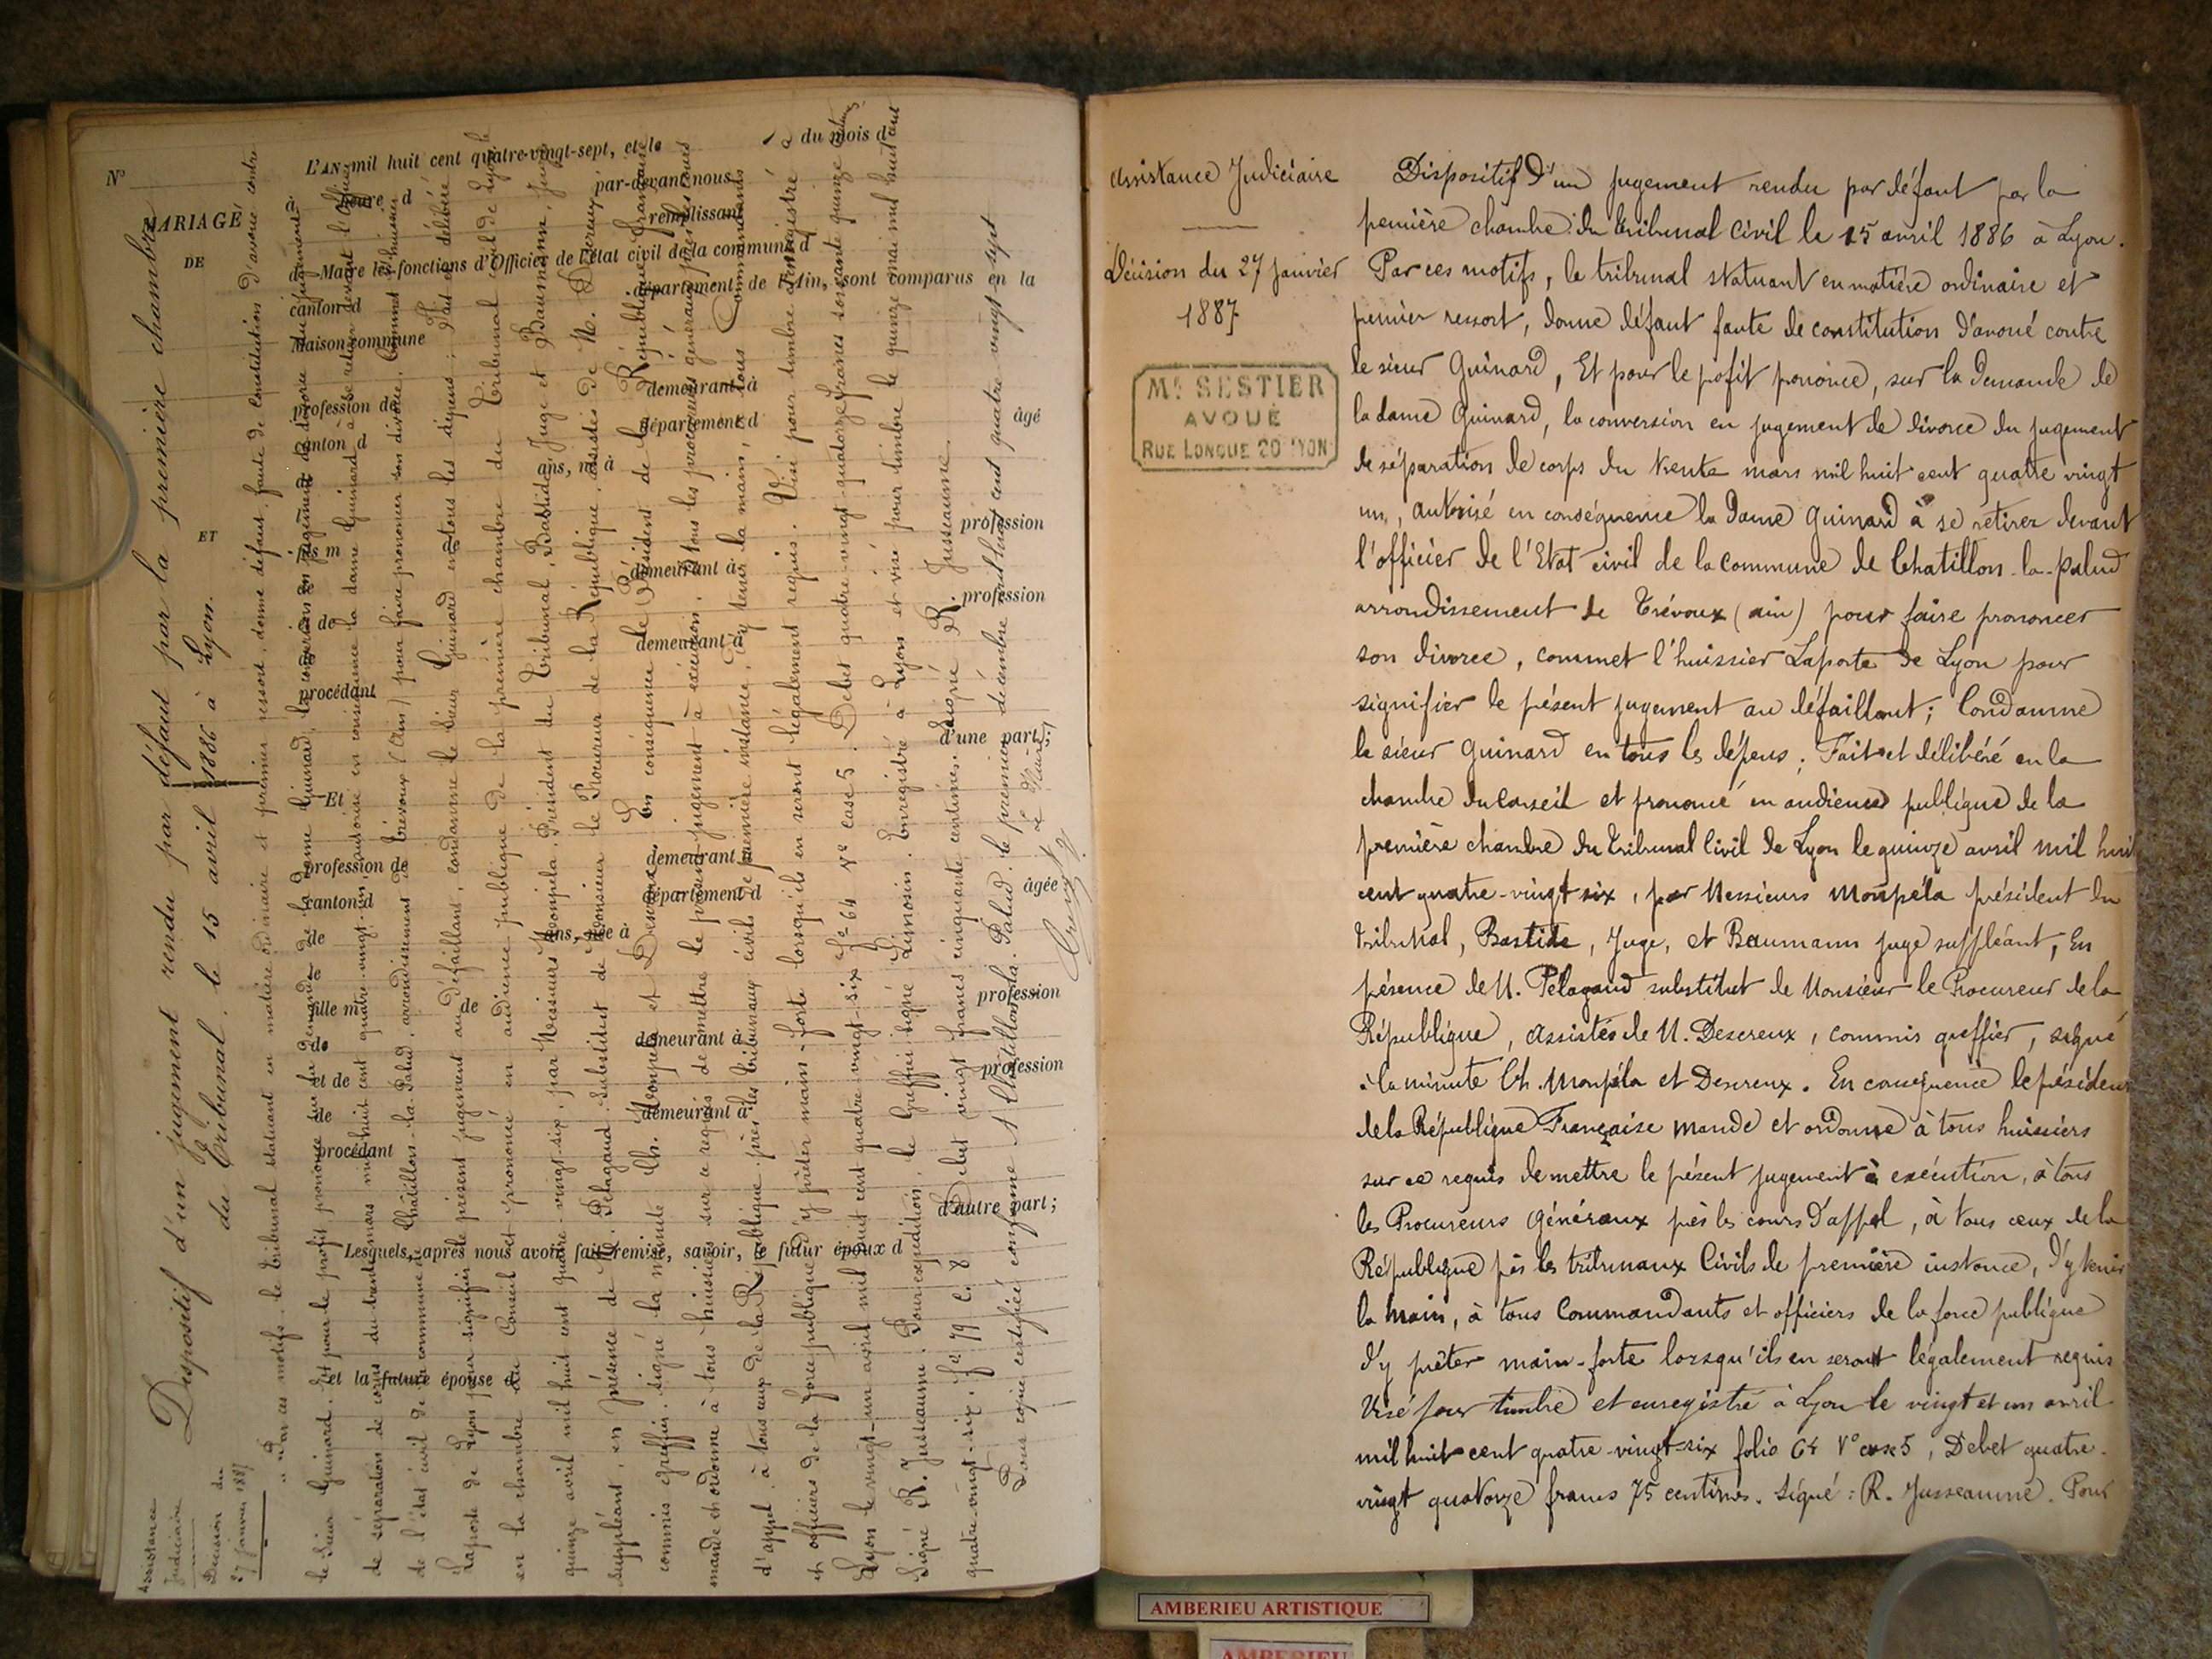 N°
MARIAGE
DE
ET
L'AN mil huit cent quatre-vingt-sept, et le
du mois d
à heure d
par-devant nous
remplissant
de Maire les fonctions d'Officier de l'état civil de la commune d
canton d
département de l'Ain, sont comparus en la
Maison commune
demeurant à
profession de
département d
âgé
canton d
ans, né à
profession
fils m
de
demeurant à
profession
et de
demeurant à
procédant
d'une part;
Et
demeurant à
profession de
département d
âgée
canton d
de
ans, née à
profession
fille m
de
de
demeurant à
profession
et de
de
demeurant à
procédant
d'autre part;
Lesquels, après nous avoir fait remise, savoir, le futur époux d
et la future épouse d
Assistance
Judiciaire
Décision du
27 janvier 1887
Dispositif d'un jugement rendu par défaut par la première chambre
du Tribunal le 15 avril 1886 à Lyon.
Par ces motifs, le tribunal statuant en matière ordinaire et premier ressort, donne défaut, faute de constitution d'avoué contre
le sieur Guinard, Et pour le profit prononce sur la demande de la dame Guinard, la conversion en jugement de divorce du jugement
de séparation de corps du trente mars mil huit cent quatre-vingt-un, autorise en conséquence la dame Guinard à se retirer devant l'officier
de l'état civil de la commune de Châtillon-la-Palud, arrondissement de Trévoux (Ain) pour faire prononcer son divorce, Commet l'huissier
Laporte de Lyon pour signifier le présent jugement au défaillant, condamne le sieur Guinard en tous les dépens; Fait et délibéré
en la chambre du Conseil et prononcé en audience publique de la première chambre du Tribunal civil de Lyon le
quinze avril mil huit cent quatre-vingt-six, par Messieurs Monpela, Président du Tribunal, Bastide, Juge et Baumann, juge
suppléant, en présence de M. Pélagaud substitut de Monsieur le Procureur de la République, assistés de M. Descreux
commis greffier, signé la minute Ch. Monpela et Descreux. En conséquence le Président de la République française
mande et ordonne à tous huissiers sur ce requis de mettre le présent jugement à exécution, à tous les procureurs généraux près les cours
d'appel, à tous ceux de la République près les tribunaux civils de première instance, d'y tenir la main, à tous Commandants
et officiers de la force publique d'y prêter main-forte lorsqu'ils en seront légalement requis. Visé pour timbre et enregistré à
Lyon le vingt-un avril mil huit cent quatre-vingt-six f° 64 V° case 5. Débet quatre-vingt-quatorze francs soixante quinze centimes
Signé R. Jusseaume. Pour expédition, le Greffier signé Limosin. Enregistré à Lyon et visé pour timbre le quinze mai mil huit cent
quatre-vingt-six, f° 79 C. 8. Débet vingt francs cinquante centimes. Signé R. Jusseaume.
Pour copie certifiée conforme à Châtillon-la-Palud, le premier décembre mil huit cent quatre vingt-sept
Le Maire
assistance Judiciaire
Décision du 27 janvier
1887
Me SESTIER
AVOUÉ
RUE LONGUE 20 LYON
Dispositif d'un jugement rendu par défaut par la
première chambre du tribunal Civil le 15 avril 1886 à Lyon.
Par ces motifs, le tribunal statuant en matière ordinaire et
premier ressort, donne défaut faute de constitution d'avoué contre
le sieur Guinard, Et pour le profit prononce, sur la demande de
la dame Guinard, la conversion en jugement de divorce du jugement
de séparation de corps du trente mars mil huit cent quatre vingt
un, autorisé en conséquence la Dame Guinard à se retirer devant
l'officier de l'Etat civil de la commune de Chatillon-la-Palud
arrondissement de Trévoux (ain) pour faire prononcer
son divorce, commet l'huissier Laporte de Lyon pour
signifier le présent jugement au défaillant; Condamne
le sieur Guinard en tous les dépens; Fait et délibéré en la
chambre du Conseil et prononcé en audience publique de la
première chambre du Tribunal Civil de Lyon le quinze avril mil huit
cent quatre-vingt six, par Messieurs Monpéla président du
tribunal, Bastide, Juge, et Baumann juge suppléant, En
présence de M. Pélagaud substitut de Monsieur le Procureur de la
République, assistés de M. Descreux, commis greffier, signé
à la minute Ch. Monpéla et Descreux. En conséquence le président
de la République Française mande et ordonne à tous huissiers
sur ce requis de mettre le présent jugement à exécution, à tous
les Procureurs généraux près les cours d'appel, à tous ceux de la
République près les tribunaux Civils de première instance, d'y tenir
la main, à tous Commandants et officiers de la force publique
d'y prêter main-forte lorsqu'ils en seront légalement requis
Visé pour timbre et enregistré à Lyon le vingt et un avril
mil huit cent quatre-vingt-six folio 64 V° case 5, Debet quatre-
vingt quatorze francs 75 centimes. Signé : R. Jusseaume. Pour
AMBERIEU ARTISTIQUE
AMBERIEU